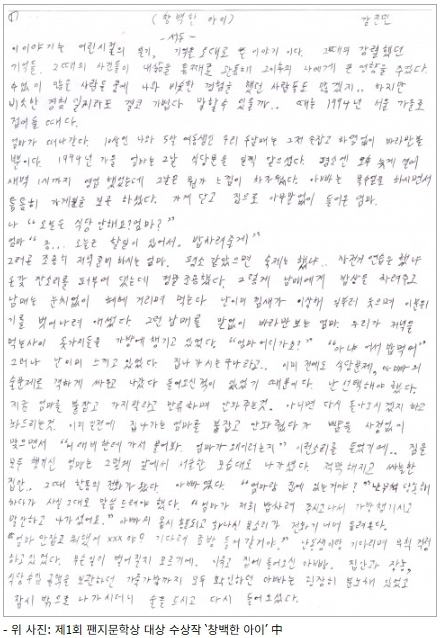 (창백한 아이)
-서두-
이 이야기는 어린시절의 일기, 기억을 토대로 쓴 이야기 이다. 그때의 강렬했던
기억들, 그때의 사건들이 내 삶을 통째로 관통해 그 이후의 나에게 큰 영향을 주었다.
수없이 많은 사람들 중에 나와 비슷한 경험을 했던 사람들도 많겠지.. 하지만
비슷한 경험일지라도 결코 가볍다 말할수 있을까.. 때는 1994년 서울 가을로
접어들 때다.
엄마가 떠나간다. 10살인 나와 5살 여동생인 우리 두남매는 그저 손잡고 하염없이 바라만볼
뿐이다. 1994년 가을 엄마는 2남 식당문을 일찍 닫으셨다. 평소엔 오후 늦게 열어
새벽 1시까지 영업 했었는데 그날은 뭔가 느낌이 이상했다. 아빠는 목수일로 하시면서
틈틈히 가게일을 보곤 하셨다. 가게 닫고 집으로 아무말없이 들어온 엄마.
나 "오늘은 식당 안해요? 엄마?"
엄마 "응... 오늘은 할일이 있어서. 밥차려줄게"
그러곤 조용히 저녁준비 하시는 엄마. 평소 같았으면 숙제는 했냐.. 자전거 연습은 했냐
온갖 잔소리를 퍼부어 댔는데 정말 조용했다. 그렇게 남매에게 밥상을 차려주고
남매는 눈치없이 헤헤 거리며 먹는다. 난 이미 낌새가 이상해 일부러 웃으며 이 분위
기를 벗어나려 애썼다. 그런 남매를 말없이 바라만 보는 엄마. 우리가 저녁을
먹는사이 옷가지들을 가방에 챙기고 있었다. "엄마 어디가요?" "아냐 어서 밥먹어"
그러나 난 이미 느끼고 있었다. 집 나가시는구나라고.. 이미 전에도 식당문제, 아빠의
술문제로 격하게 싸우고 나갔다 들어오신적이 있었기 때문이다. 난 선택해야 했다.
지금 엄마를 붙잡고 가지말라고 만류하며 안놔주는것. 아니면 다시 돌아오시겠지 하고
놔드리는것. 이미 전에 집나가는 엄마를 붙잡고 안놔줬다가 뺨을 사정없이
맞으면서 "이 애비한테 가서 물어봐. 엄마가 왜이러는지" 이런소리를 들었기에.. 짐을
모두 챙기신 엄마는 그렇게 앞에서 서운한 모습대로 나가셨다. 적막해지고 싸늘한
집안.. 그때 한통의 전화가 왔다. 아빠였다. "엄마랑 집에 있는거야?" 난 당혹해
하다가 사실 그대로 말씀 드려야 했다. "엄마가 저희 밥차려 주시고나서 가방챙기시고
말안하고 나가셨어요." 아빠의 몹시 흥분되고 화나신 목소리가 전화기 너머 들려온다.
"엄마 안잡고 뭐했어 xxx야! 기다려 금방 들어갈거야." 난 동생이랑 기다리며 무척 걱정
하고 있었다. 무슨일이 벌어질지 모르기에. 이윽고 집에 들어오신 아빠. 집안과 장농,
식당수익 금액을 보관하던 가죽가방까지 모두 확인하던 아빠는 굉장히 분노해 있었고
잠시 밖으로 나가시더니 술을 드시고 다시 들어오셨다.
- 위 사진: 제1회 팬지문학상 대상 수상작 '창백한 아이' 中